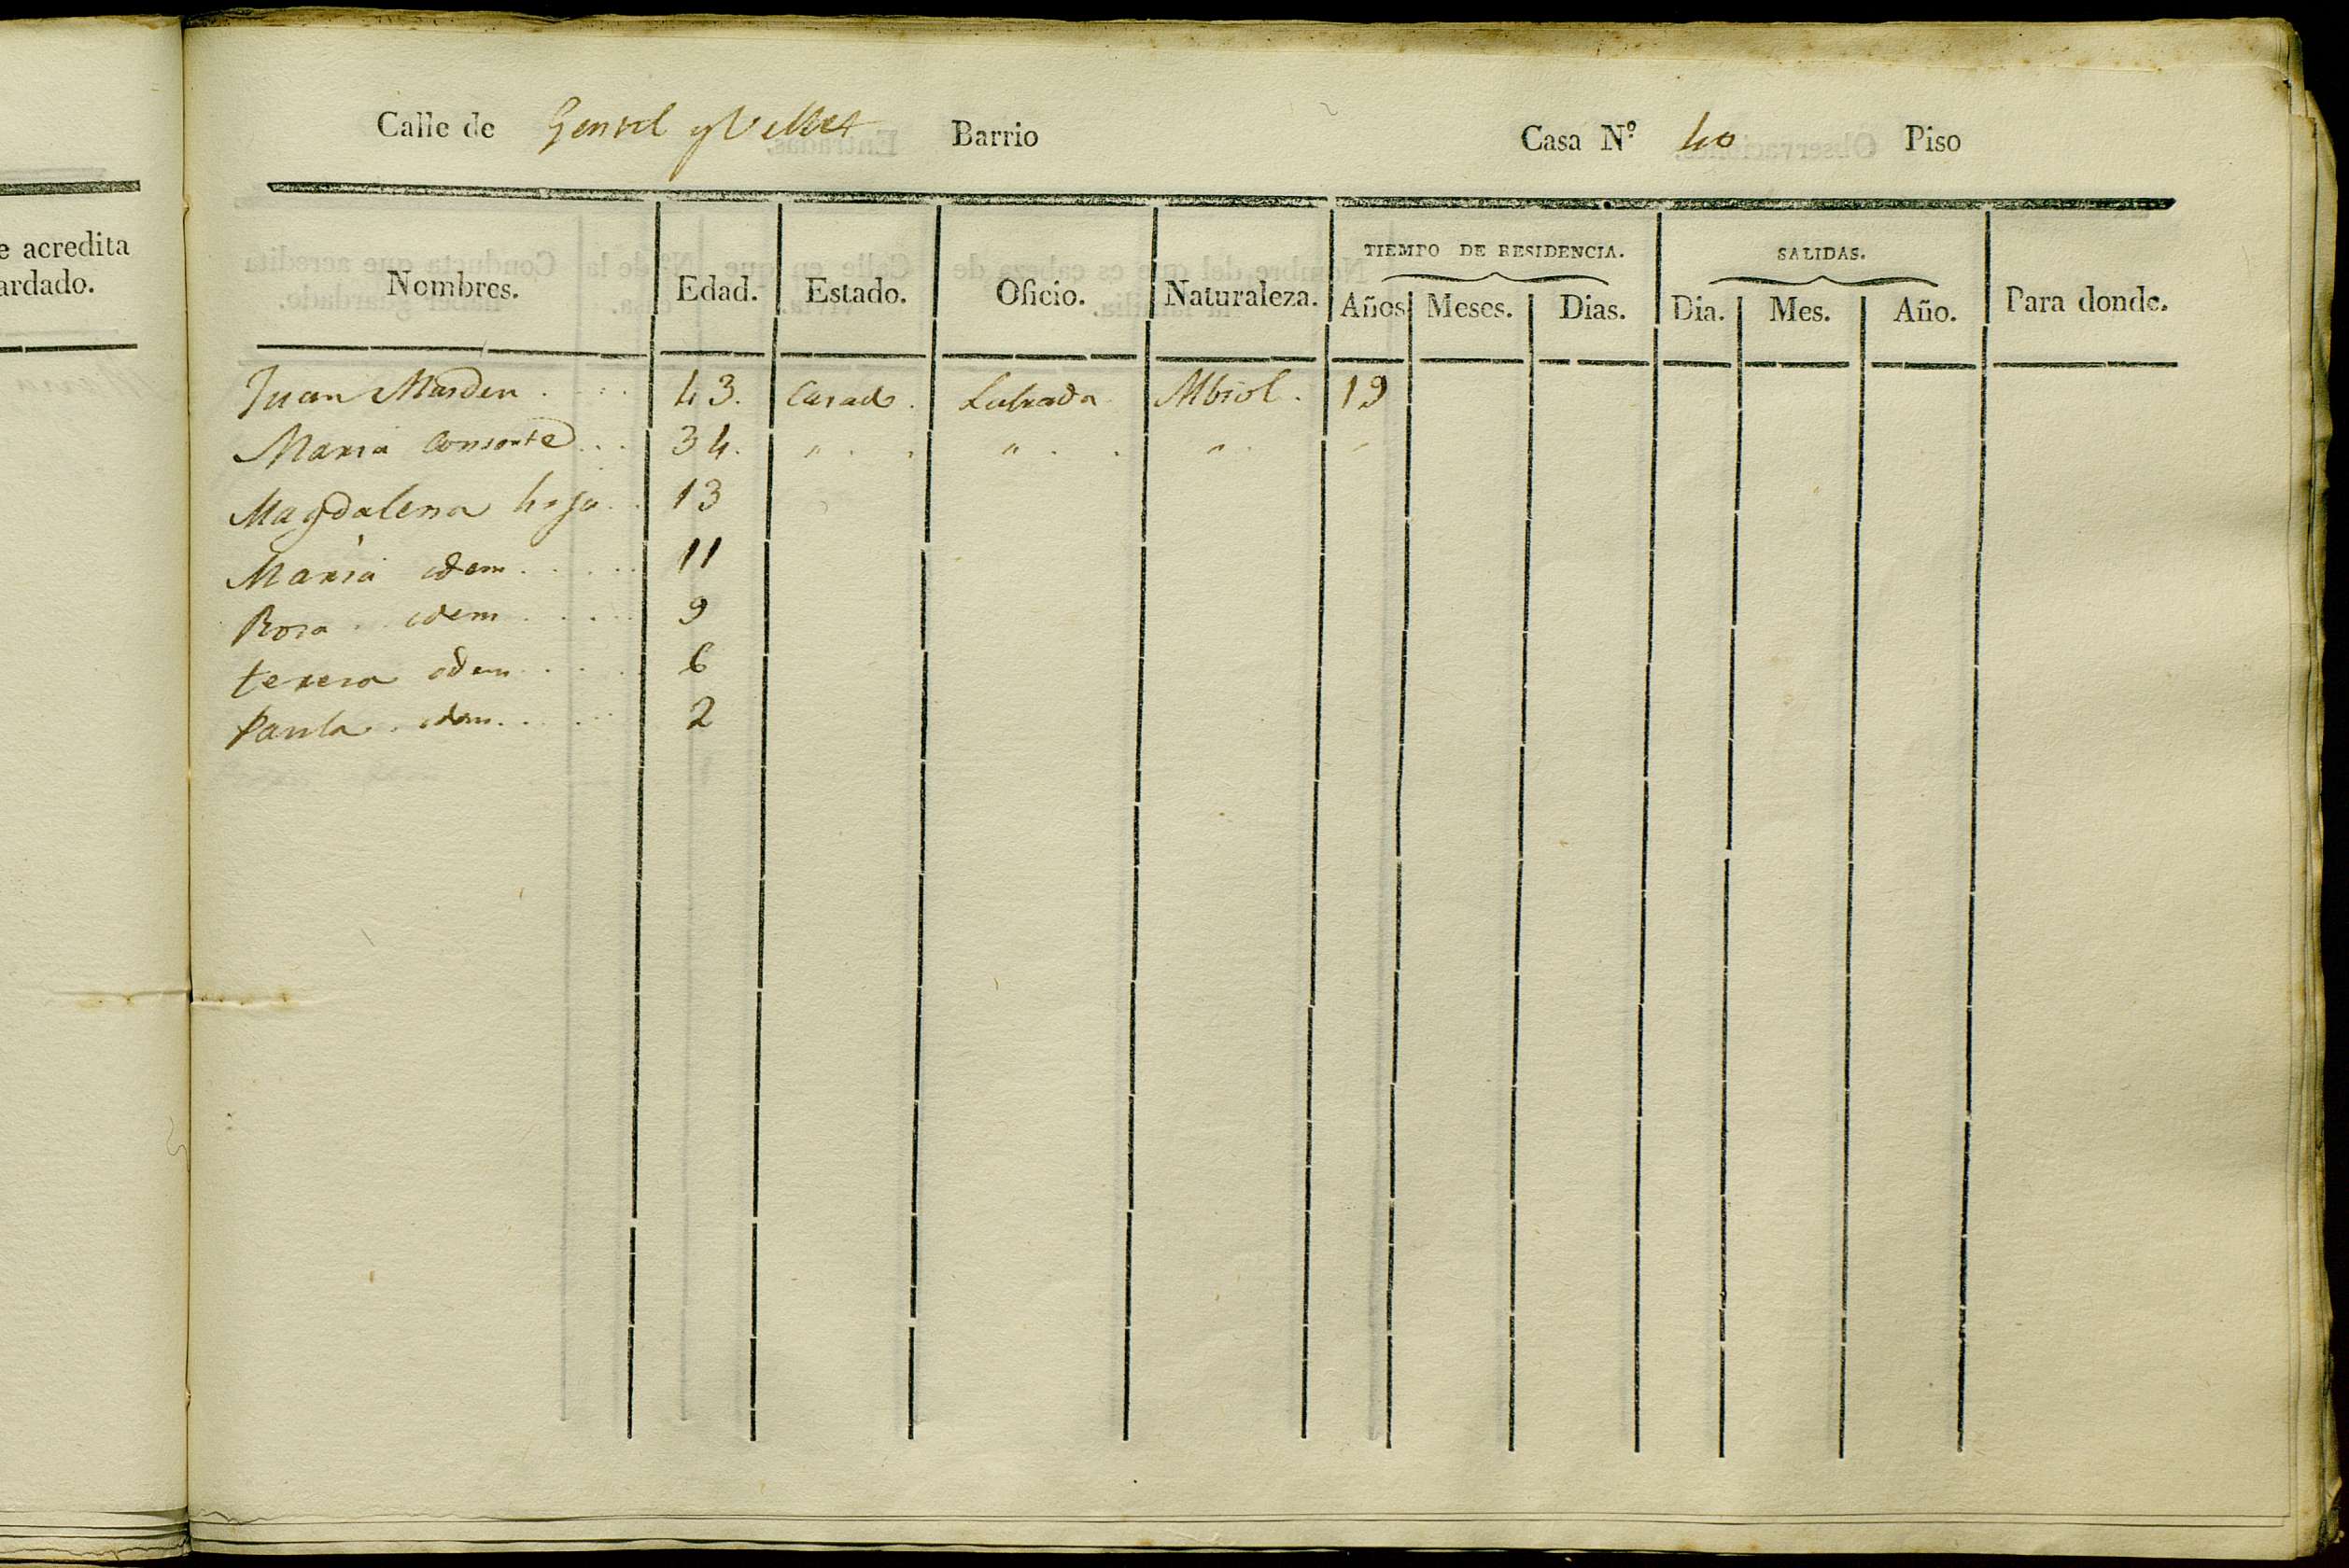 e acredita
ardado.
Calle de Genrol y Vellet Barrio Casa Nº 40 Piso
Nombres. Edad. Estado. Oficio. Naturaleza. TIEMPO DE RESIDENCIA. Años Meses. Dias. SALIDAS. Dia. Mes. Año. Para donde.
Juan Marden 43. Casado. Labrador Albiol. 19
Maria Consorte 34. " " " "
Magdalena hija 13
Maria idem 11
Rosa idem 9
teresa idem 6
Paula idem 2